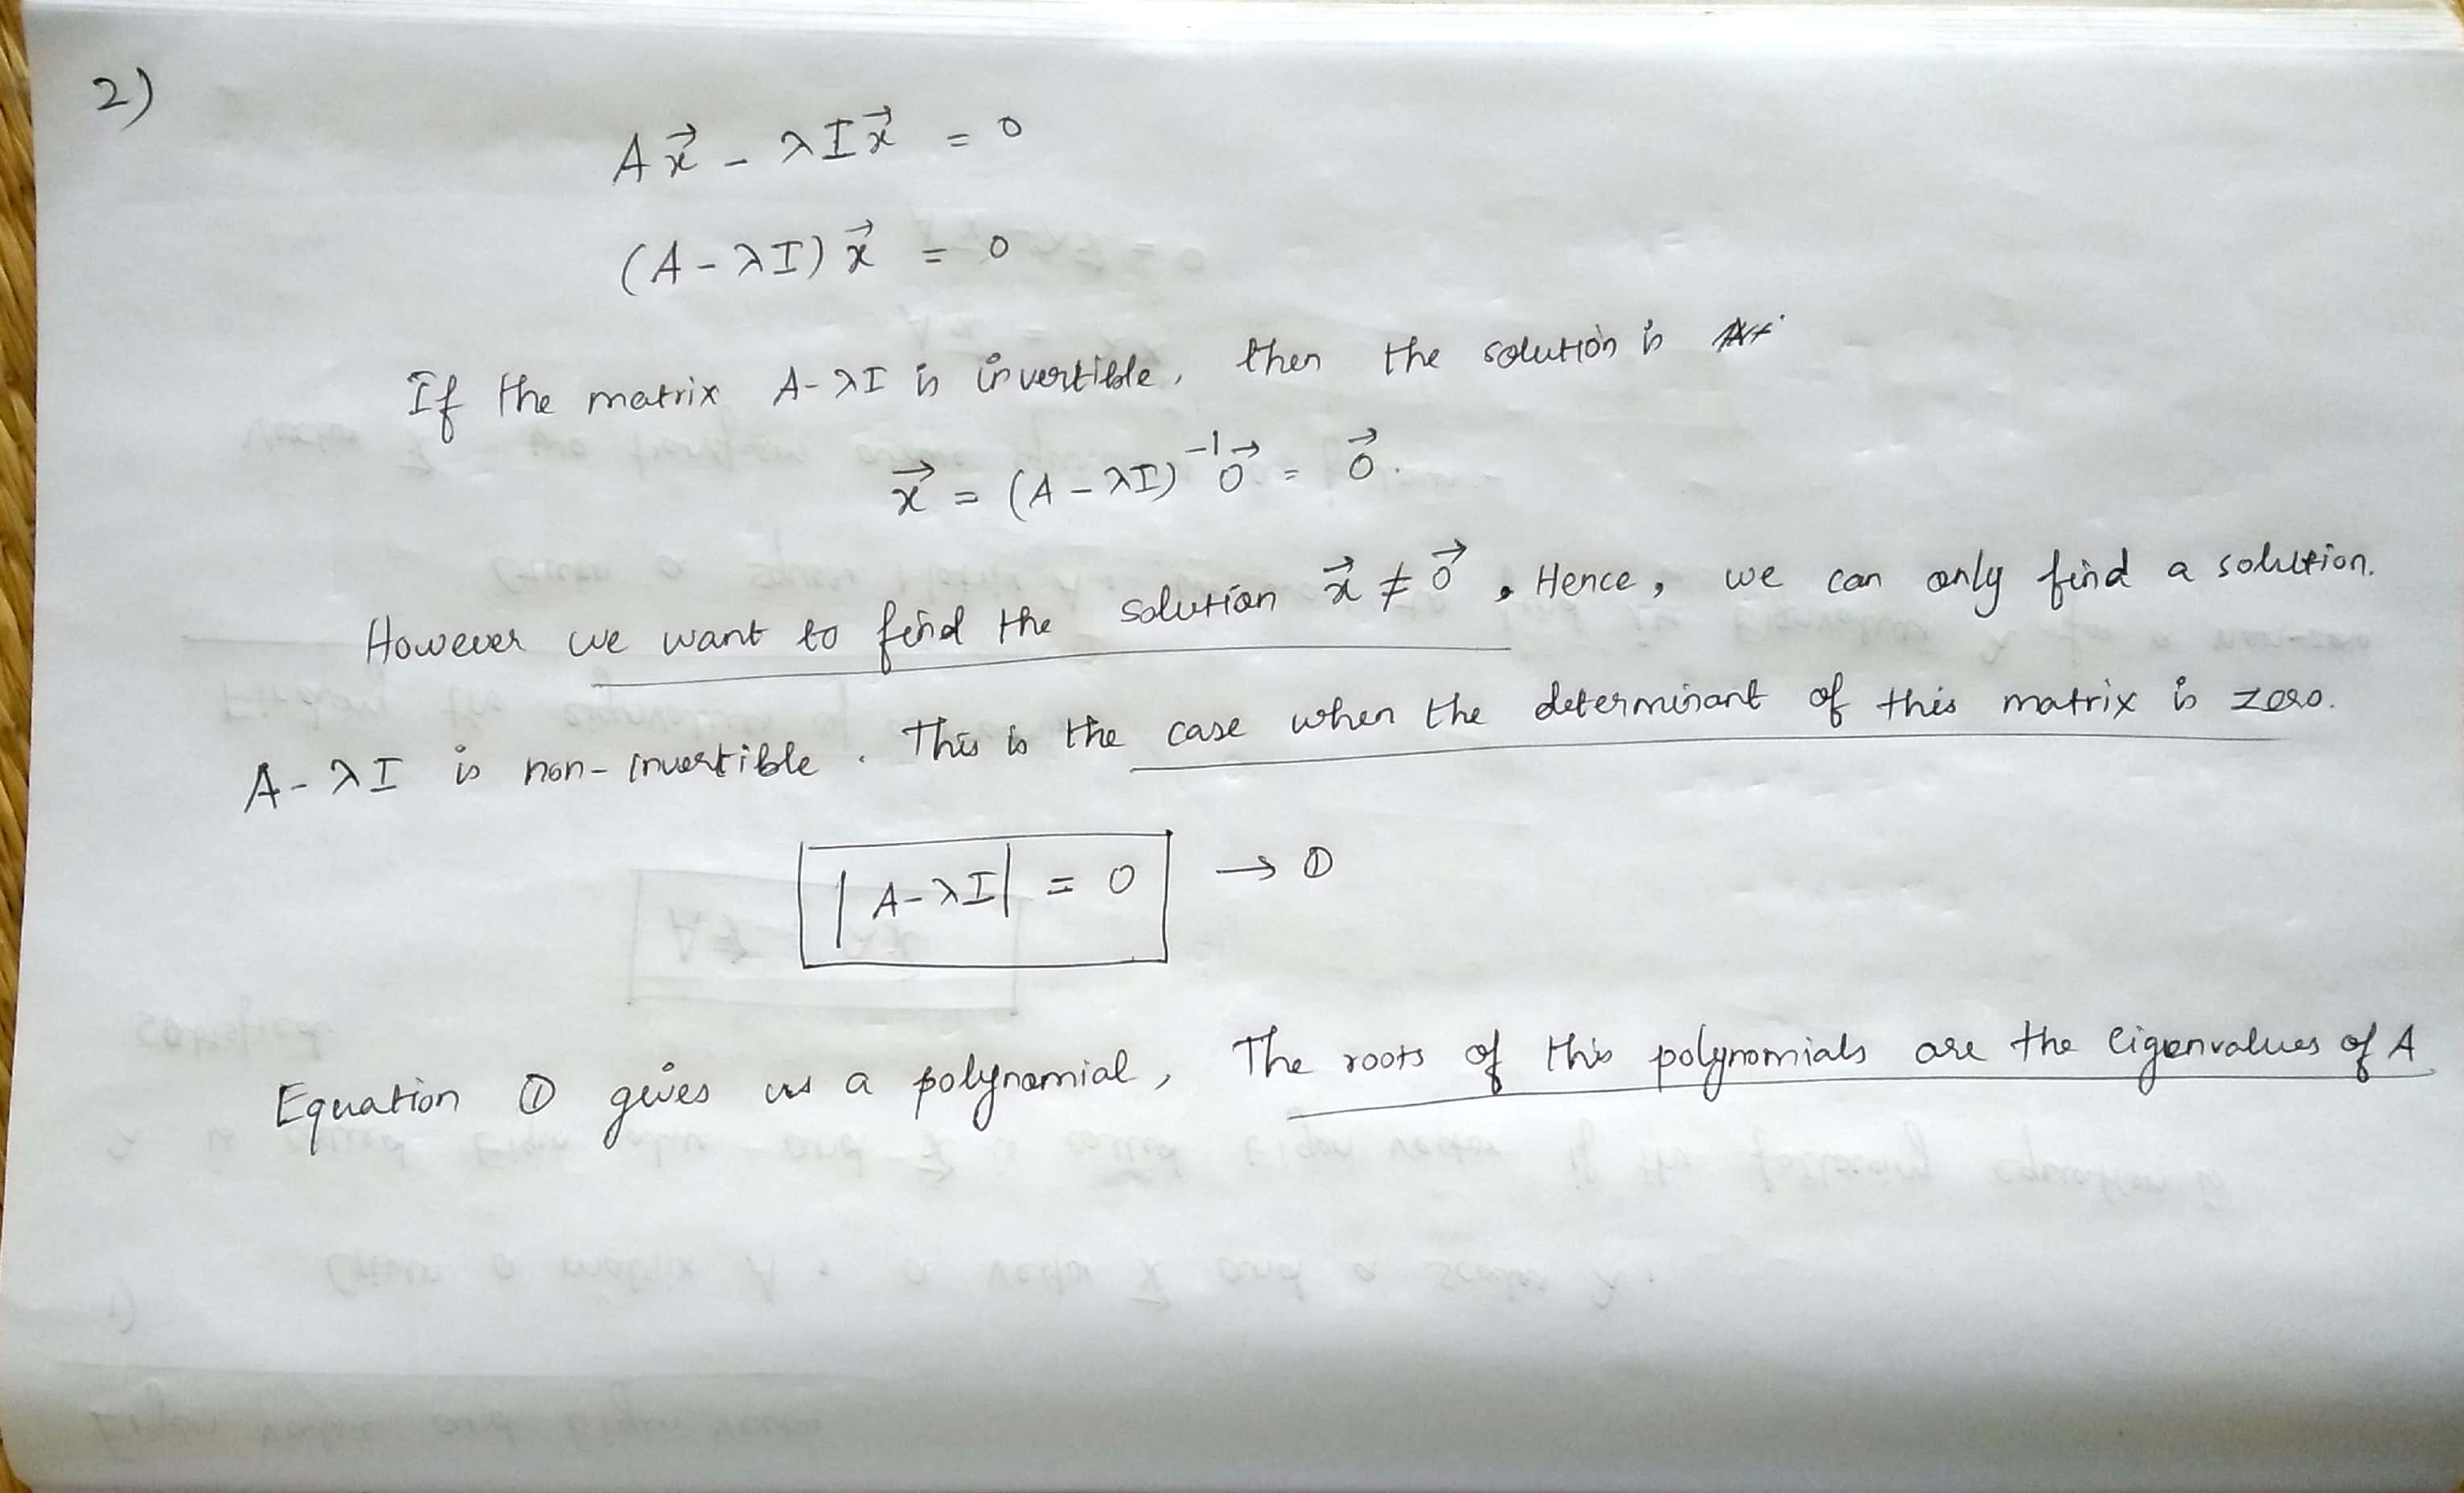 2)
Ax⃗ - λIx⃗ = 0
(A-λI) x⃗ = 0
If the matrix A-λI is invertible, then the solution is
x⃗ = (A-λI)⁻¹0⃗ = 0⃗.
However we want to find the solution x⃗ ≠ 0⃗, Hence, we can only find a solution.
A-λI is non-invertible. This is the case when the determinant of this matrix is zero.
|A-λI| = 0 → ①
Equation ① gives us a polynomial, The roots of this polynomials are the eigenvalues of A